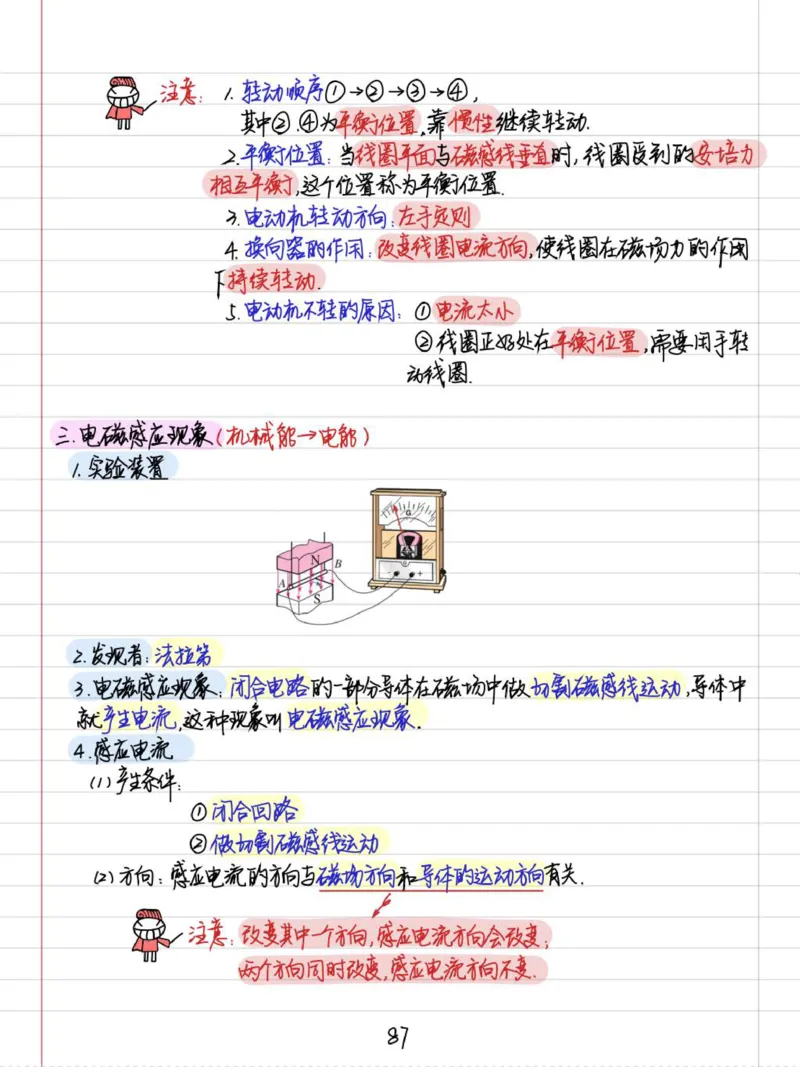 注意: 1. 转动顺序①→②→③→④,
其中②.④为平衡位置,靠惯性继续转动.
2.平衡位置:当线圈平面与磁感线垂直时,线圈受到的安培力
相互平衡,这个位置称为平衡位置.
3.电动机转动方向:左手定则
4.换向器的作用:改变线圈电流方向,使线圈在磁场力的作用
下持续转动.
5.电动机不转的原因:①电流太小
②线圈正好处在平衡位置,需要用手转
动线圈.
三.电磁感应现象(机械能→电能)
1.实验装置
G
N
A
B
S
- +
2.发现者:法拉第
3.电磁感应现象:闭合电路的一部分导体在磁场中做切割磁感线运动,导体中
就产生电流,这种现象叫电磁感应现象.
4.感应电流
(1)产生条件:
①闭合回路
②做切割磁感线运动
(2)方向:感应电流的方向与磁场方向和导体的运动方向有关.
注意:改变其中一个方向,感应电流方向会改变;
两个方向同时改变,感应电流方向不变.
87